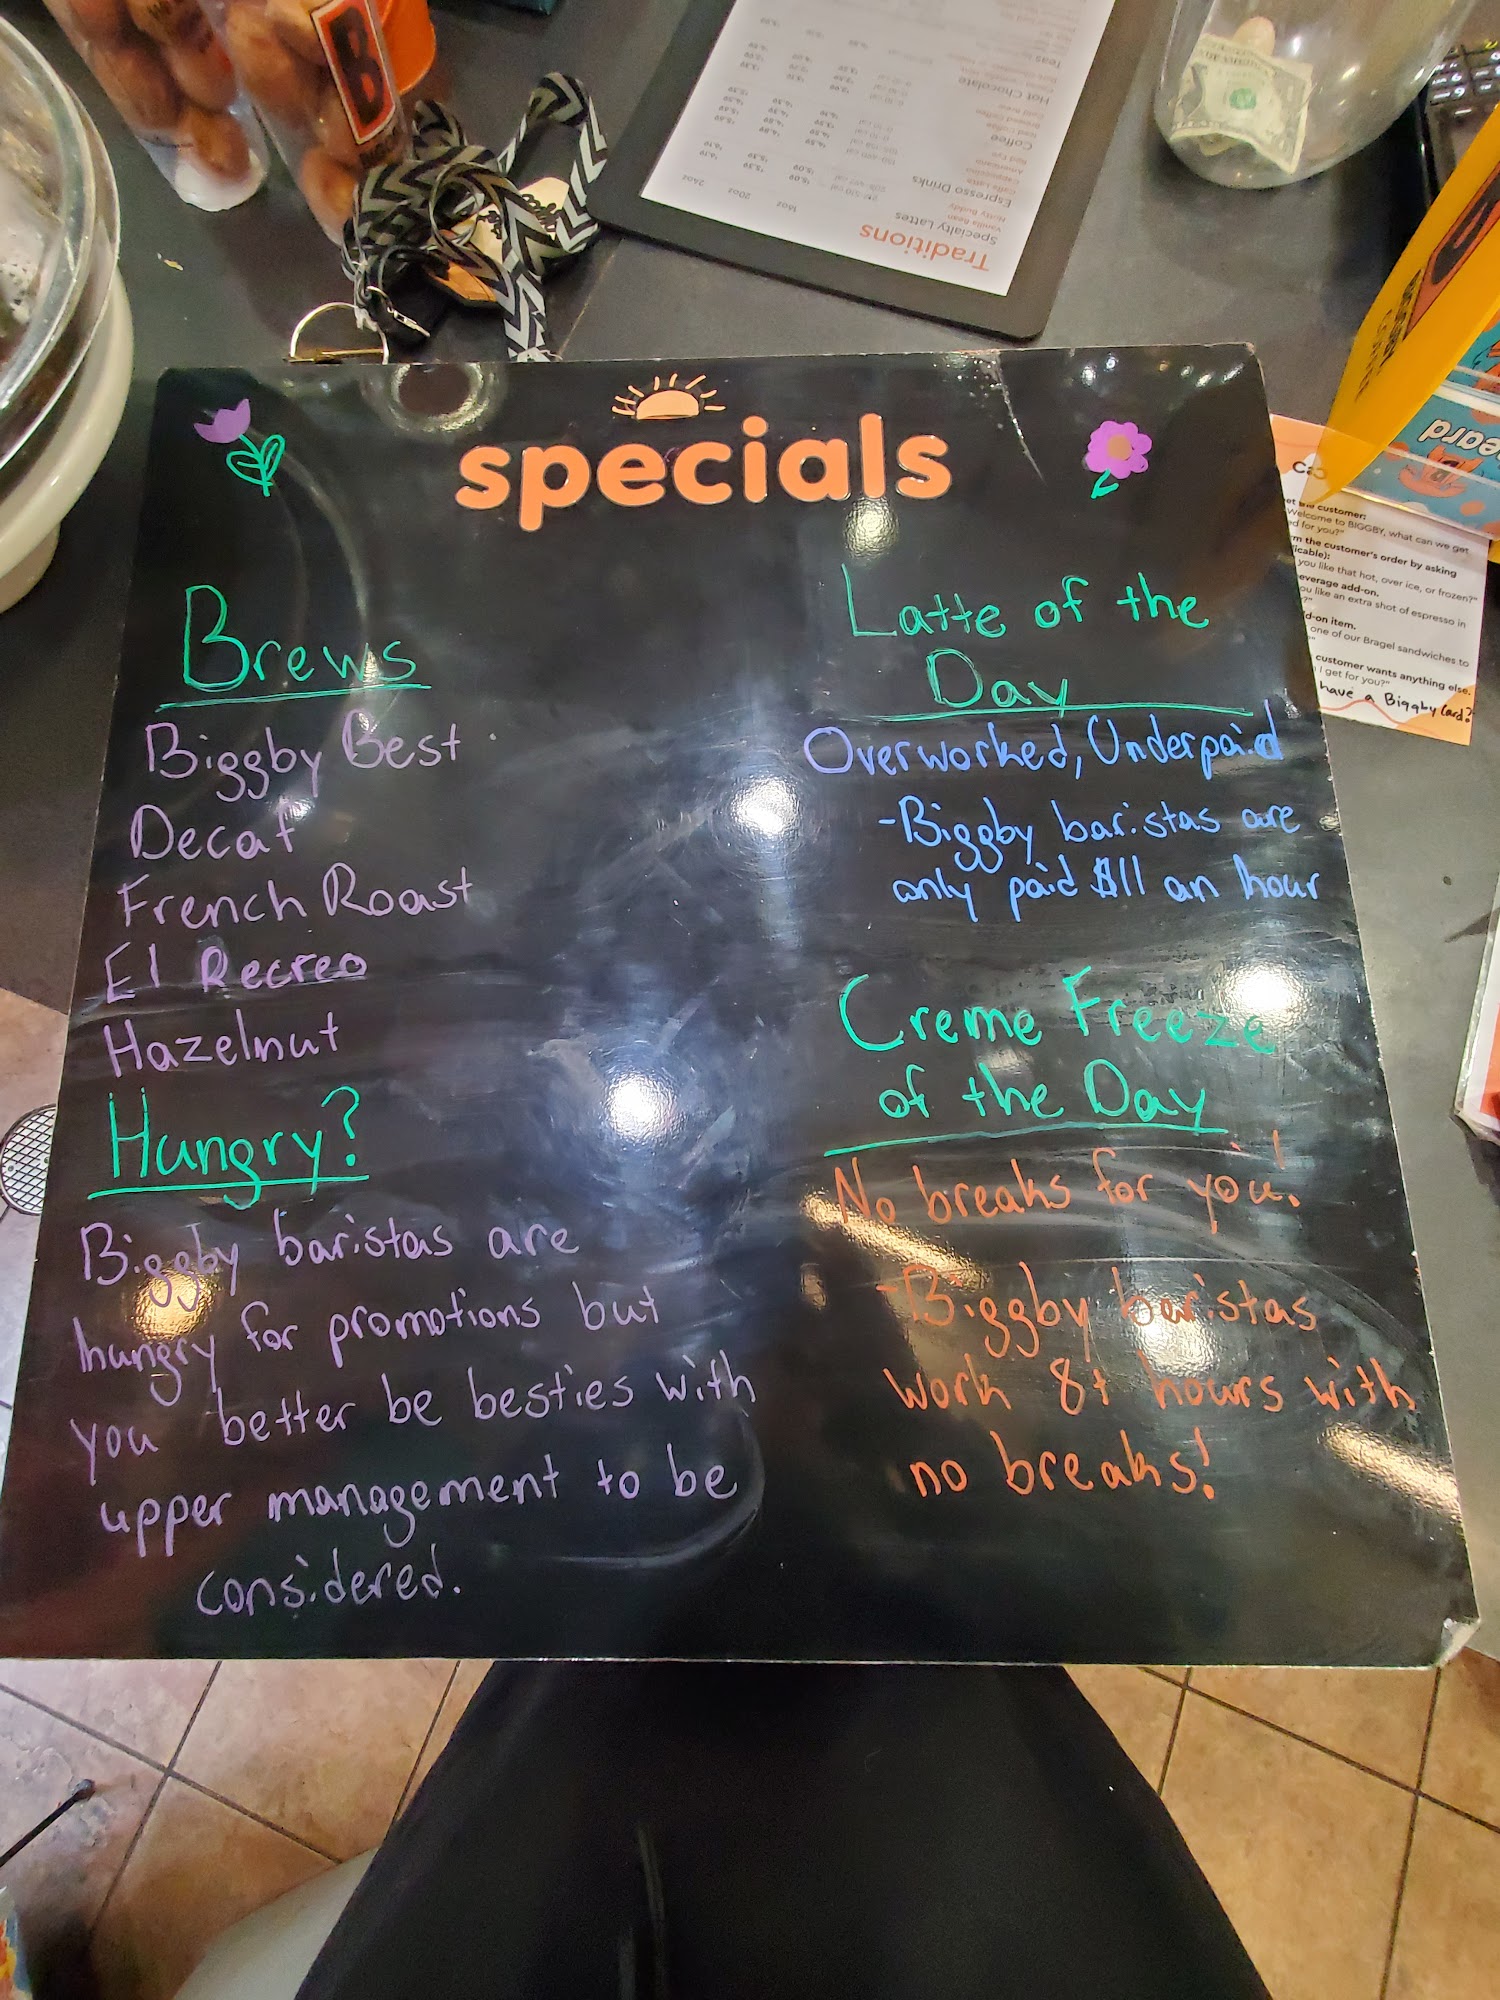 B
Traditions
Specialty Lattes
Vanilla Bean
Nutty Buddy
Espresso Drinks
Caffe Latte
Cappuccino
Americano
Red Eye
Coffee
Iced Coffee
Brewed Coffee
Hot Chocolate
Teas
16oz
20oz
24oz
specials
Brews
Biggby Best
Decaf
French Roast
El Recreo
Hazelnut
Hungry?
Biggby baristas are
hungry for promotions but
you better be besties with
upper management to be
considered.
Latte of the
Day
Overworked, Underpaid
-Biggby baristas are
only paid $11 an hour
Creme Freeze
of the Day
No breaks for you!
-Biggby baristas
work 8+ hours with
no breaks!
customer:
Welcome to BIGGBY, what can we get
for you?"
the customer's order by asking
you like that hot, over ice, or frozen?"
beverage add-on.
like an extra shot of espresso in
item.
one of our Bragel sandwiches to
customer wants anything else.
I get for you?"
have a Biggby Card?